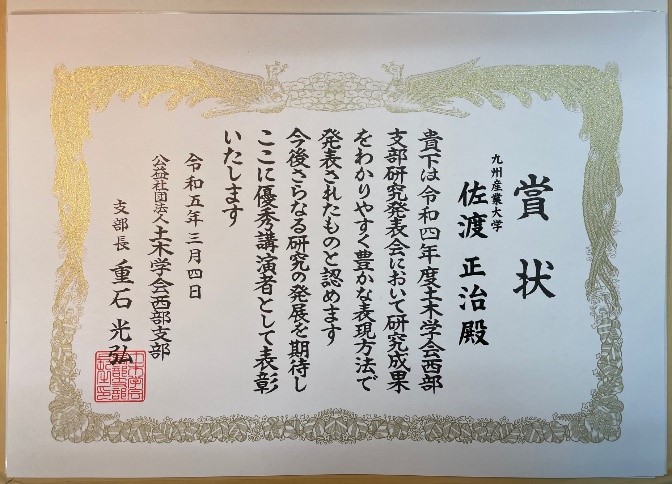 賞状
九州産業大学
佐渡 正治 殿
貴下は令和四年度土木学会西部
支部研究発表会において研究成果
をわかりやすく豊かな表現方法で
発表されたものと認めます
今後さらなる研究の発展を期待し
ここに優秀講演者として表彰
いたします
令和五年三月四日
公益社団法人 土木学会西部支部
支部長 重石 光弘